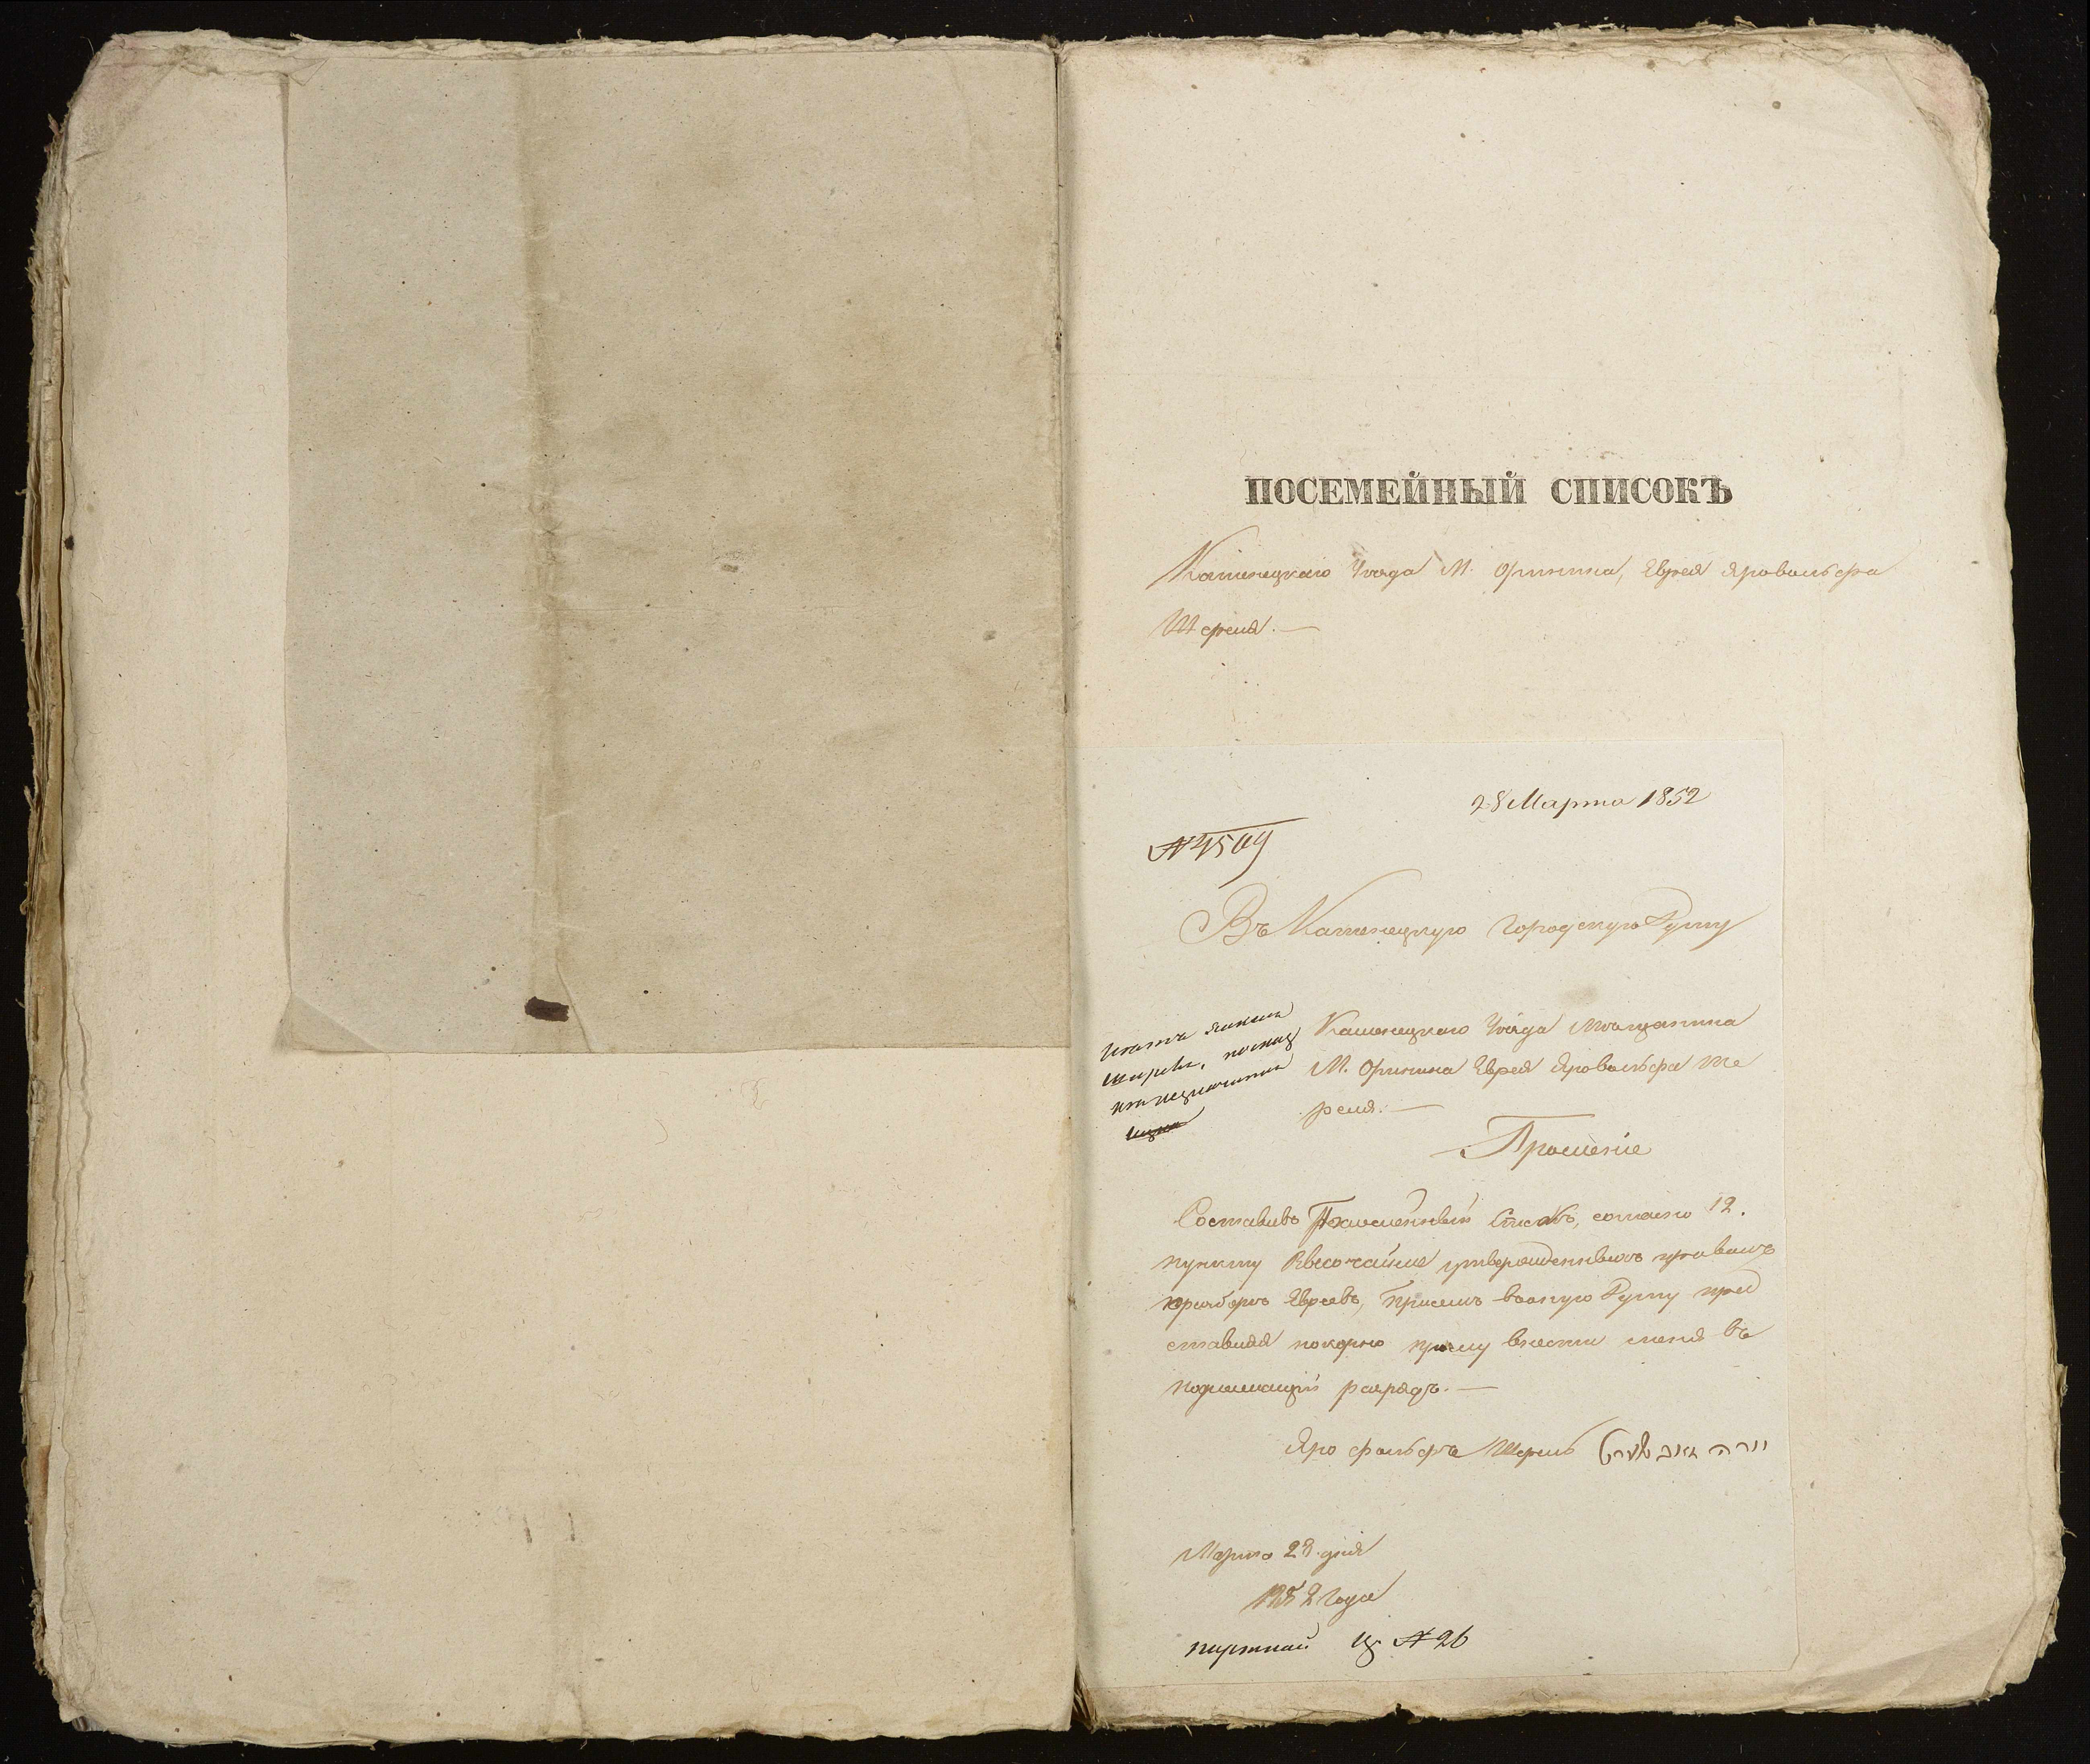 ПОСЕМЕЙНЫЙ СПИСОКЪ
Каменецкаго Уѣзда М. Оринина, Еврея Яровольфа
Шереля. —
28 Марта 1852
№ 4509
Въ Каменецкую Городскую Думу
Каменецкаго Уѣзда Мѣщанина
М. Оринина Еврея Яровольфа Ше
реля. —
Прошеніе
Составивъ Посемейный Списокъ, согласно 12.
пункту Высочайше утвержденныхъ правилъ
Евреевъ, при семъ въ оную Думу пред
ставляя покорно прошу внести меня въ
подлежащій разрядъ. —
Яро фольфъ Шерель יורה וואלף שערל
Марта 28 дня
1852 Года
№ 26